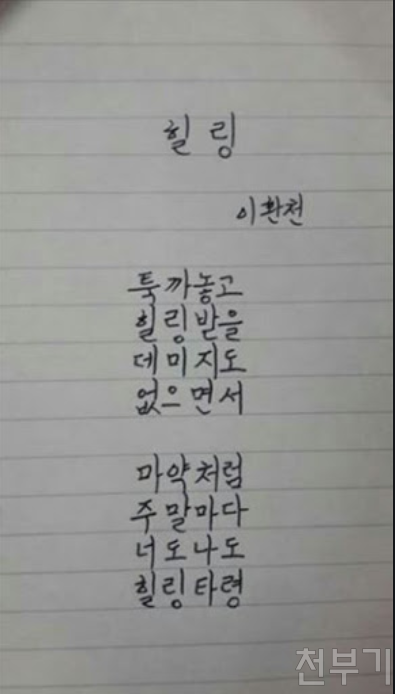 힐링
이환천
툭까놓고
힐링받을
데미지도
없으면서
마약처럼
주말마다
너도나도
힐링타령
천부기